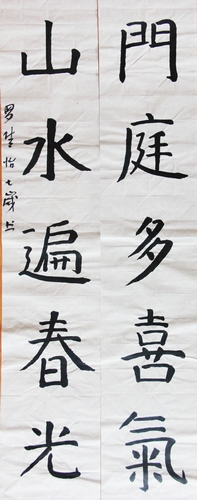 門庭多喜氣
山水遍春光
怡七歲书